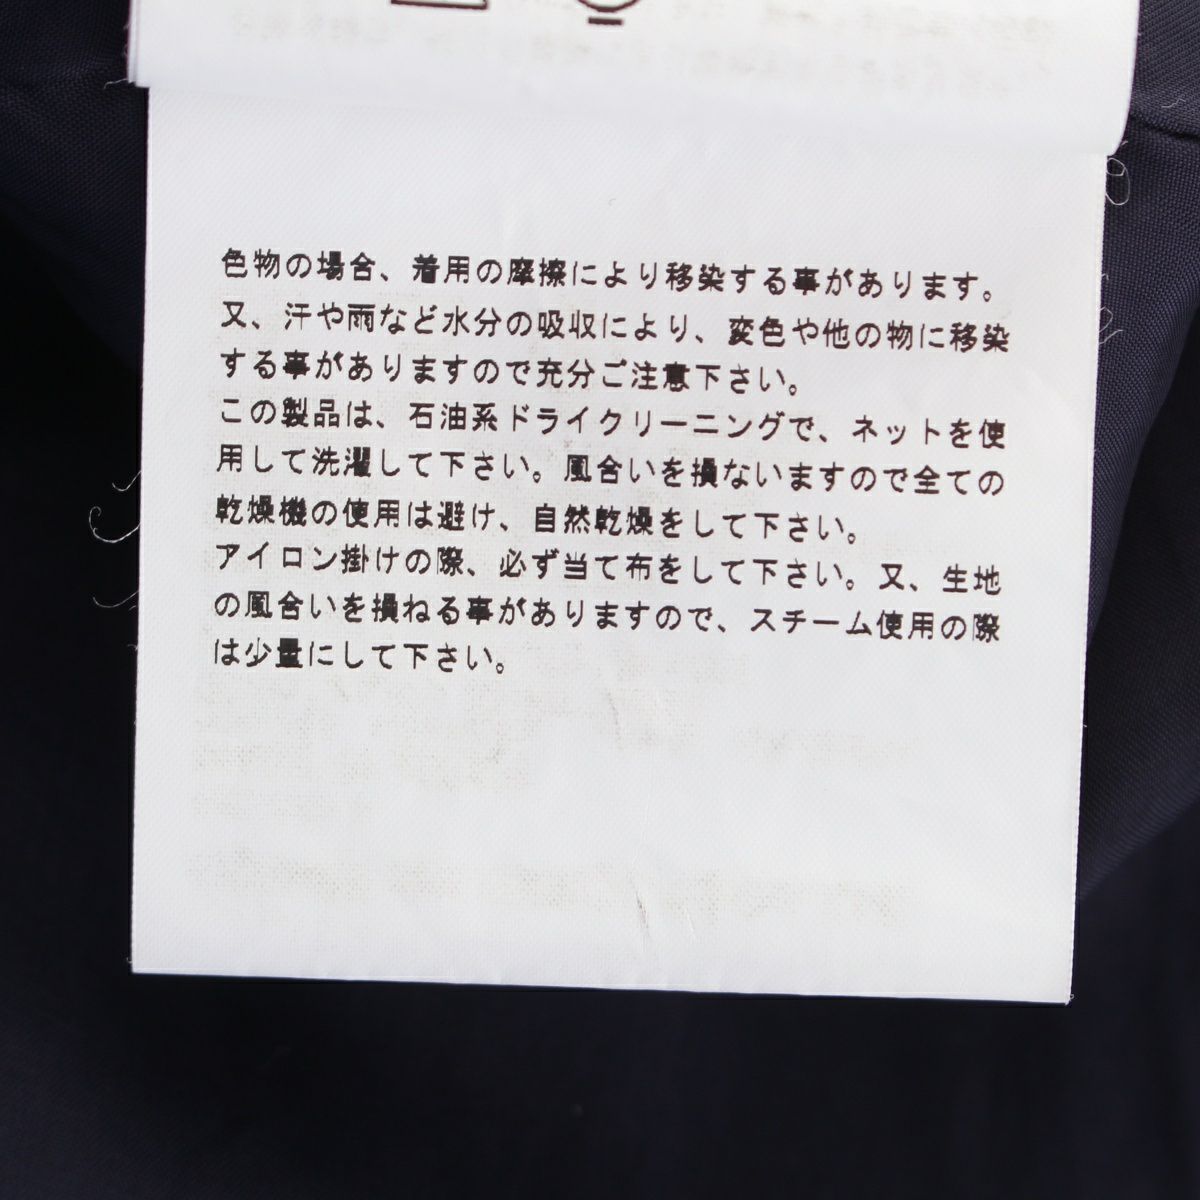 色物の場合、着用の摩擦により移染する事があります。
又、汗や雨など水分の吸収により、変色や他の物に移染
する事がありますので充分ご注意下さい。
この製品は、石油系ドライクリーニングで、ネットを使
用して洗濯して下さい。風合いを損ないますので全ての
乾燥機の使用は避け、自然乾燥をして下さい。
アイロン掛けの際、必ず当て布をして下さい。又、生地
の風合いを損ねる事がありますので、スチーム使用の際
は少量にして下さい。